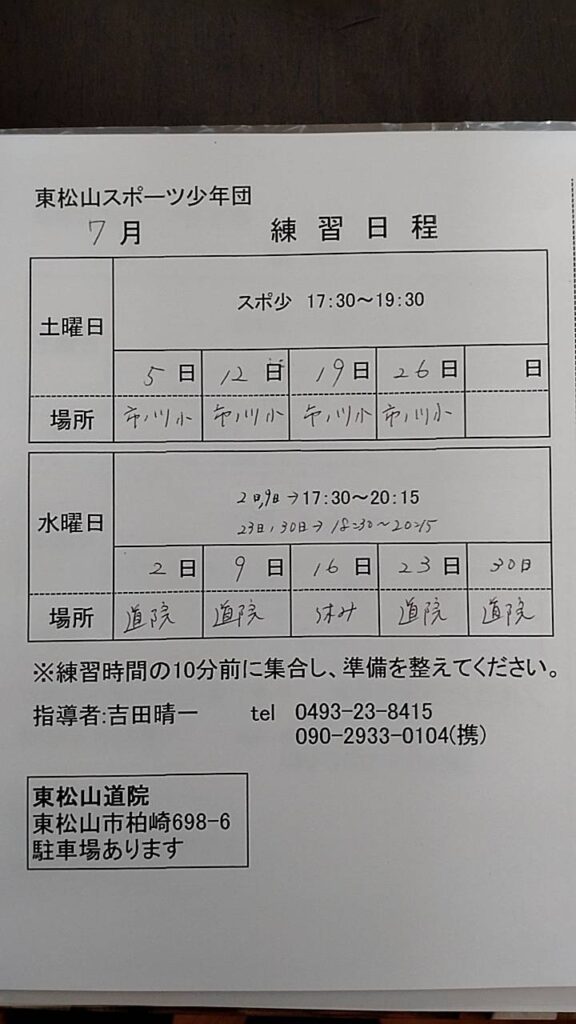 東松山スポーツ少年団
7月 練習日程
土曜日
スポ少 17:30～19:30
5日 12日 19日 26日 日
場所 市ノ川小 市ノ川小 市ノ川小 市ノ川小
水曜日
2日,9日→17:30～20:15
23日,30日→18:30～20:15
2日 9日 16日 23日 30日
場所 道院 道院 休み 道院 道院
※練習時間の10分前に集合し、準備を整えてください。
指導者:吉田晴一 tel 0493-23-8415
090-2933-0104(携)
東松山道院
東松山市柏崎698-6
駐車場あります